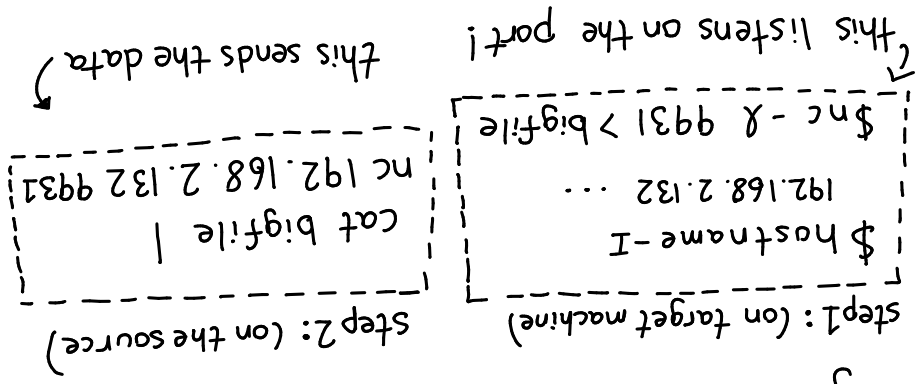 step1: (on target machine)
$ hostname -I
192.168.2.132 ...
$ nc -l 9931 > bigfile
this listens on the port!
step2: (on the source)
cat bigfile |
nc 192.168.2.132 9931
this sends the data